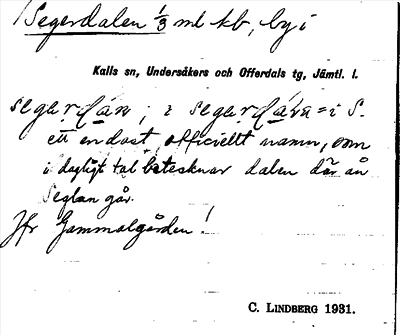 Segerdalen 1/3 ml kb, by i
Kalls sn, Undersåkers och Offerdals tg, Jämtl. l.
segerdán ; i segerdána = i S.
ett endast officiellt namn, som
i dagligt tal betecknar dalen där ån
Seglan går.
Jfr Gammalgården!
C. LINDBERG 1931.